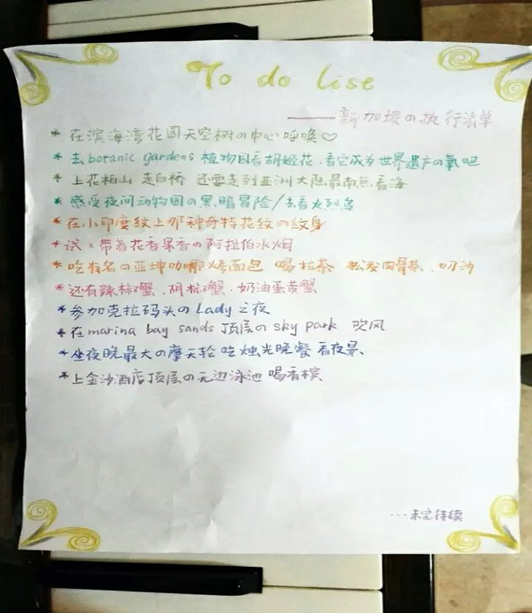 To do List
——新加坡の执行清单
* 在滨海湾花园天空树の中心呼唤♡
* 去botanic gardens 植物园看胡姬花.看它成为世界遗产の氧吧
* 上花柏山 走白桥 还要走到亚洲大陆最南点看海
* 感受夜间动物园の黑暗冒险/去看火烈鸟
* 在小印度纹上那种奇特花纹の纹身
* 试々带着花香果香の阿拉伯水烟
* 吃有名の亚坤咖椰烤面包 喝拉茶 松发肉骨茶、叻沙
* 还有辣椒蟹.胡椒蟹.奶油蛋黄蟹
* 参加克拉码头の Lady 之夜
* 在marina bay sands 顶层の sky park 吹风
* 坐夜晚最大の摩天轮 吃烛光晚餐 看夜景、
* 上金沙酒店顶层の无边泳池 喝香槟
...未完待续